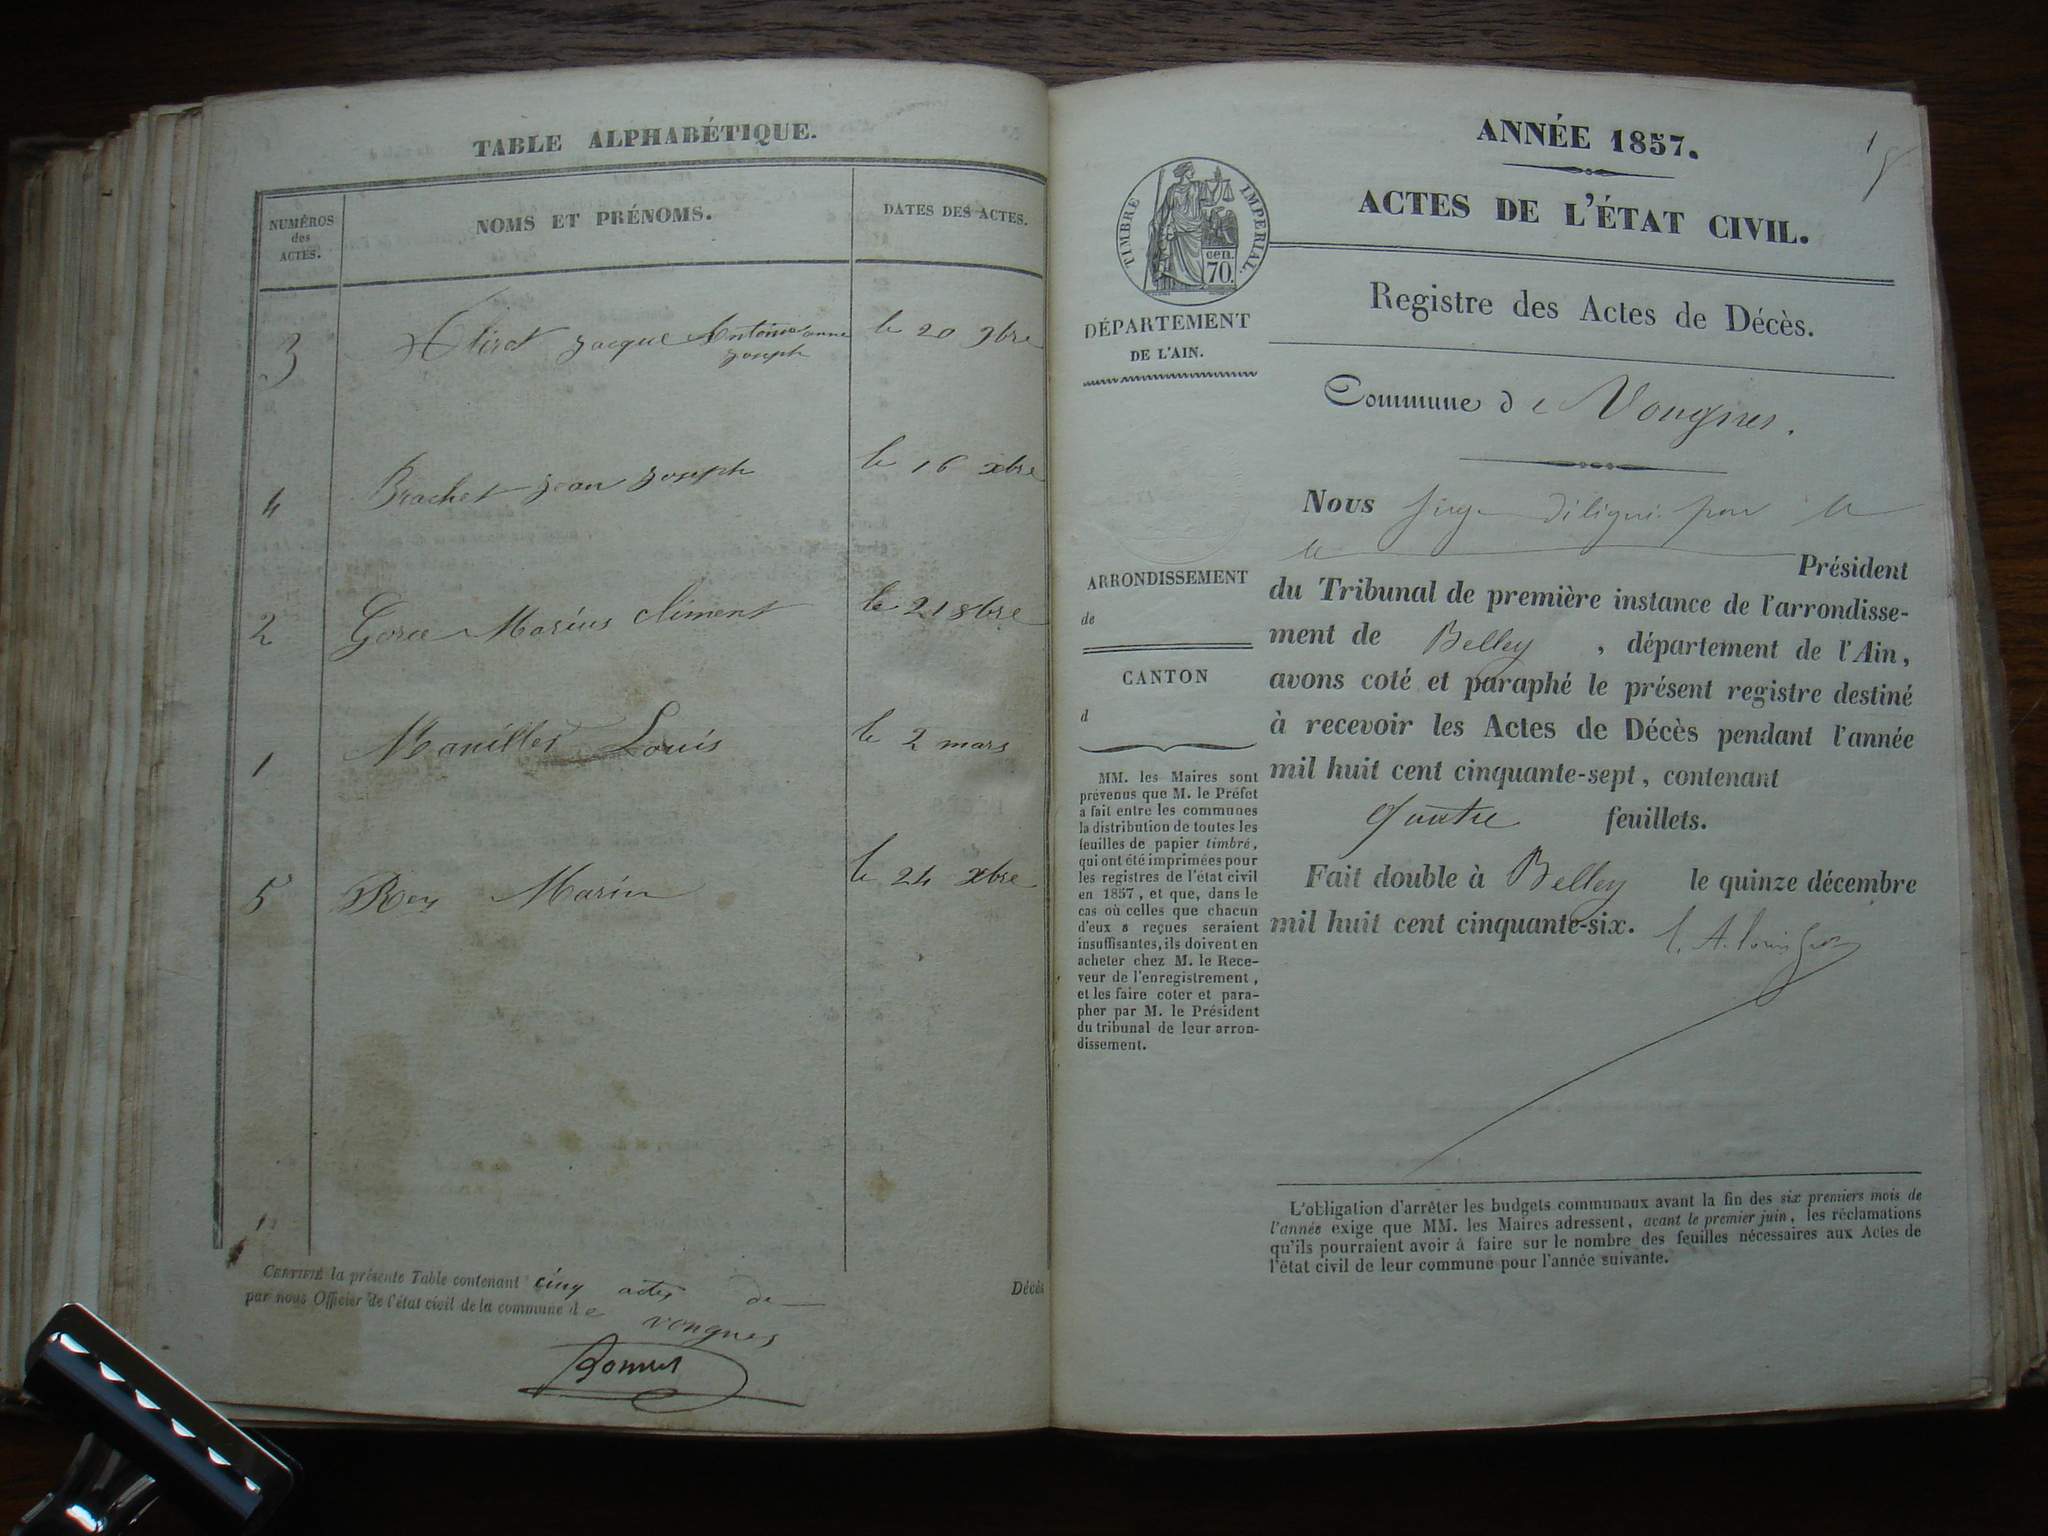 TABLE ALPHABÉTIQUE.
NUMÉROS
des
ACTES.
NOMS ET PRÉNOMS.
DATES DES ACTES.
3 Jacque Antoine anne le 20 9bre
Joseph
4 Brachet Jean Joseph le 16 xbre
2 Marius Climent le 21 8bre
1 Louis le 2 mars
5 Rey le 24 xbre
CERTIFIÉ la présente Table contenant cinq actes de Décès
par nous Officier de l'état civil de la commune de vongnes
ANNÉE 1857.
1
ACTES DE L'ÉTAT CIVIL.
TIMBRE IMPERIAL.
cen.
70.
Registre des Actes de Décès.
DÉPARTEMENT
DE L'AIN.
Commune de Vongnes.
Nous Juge pour
Président
du Tribunal de première instance de l'arrondisse-
ment de Belley, département de l'Ain,
avons coté et paraphé le présent registre destiné
à recevoir les Actes de Décès pendant l'année
mil huit cent cinquante-sept, contenant
quatre feuillets.
Fait double à Belley le quinze décembre
mil huit cent cinquante-six.
ARRONDISSEMENT
de
CANTON
d
MM. les Maires sont
prévenus que M. le Préfet
a fait entre les communes
la distribution de toutes les
feuilles de papier timbré,
qui ont été imprimées pour
les registres de l'état civil
en 1857, et que, dans le
cas où celles que chacun
d'eux a reçues seraient
insuffisantes, ils doivent en
acheter chez M. le Rece-
veur de l'enregistrement,
et les faire coter et para-
pher par M. le Président
du tribunal de leur arron-
dissement.
L'obligation d'arrêter les budgets communaux avant la fin des six premiers mois de
l'année exige que MM. les Maires adressent, avant le premier juin, les réclamations
qu'ils pourraient avoir à faire sur le nombre des feuilles nécessaires aux Actes de
l'état civil de leur commune pour l'année suivante.